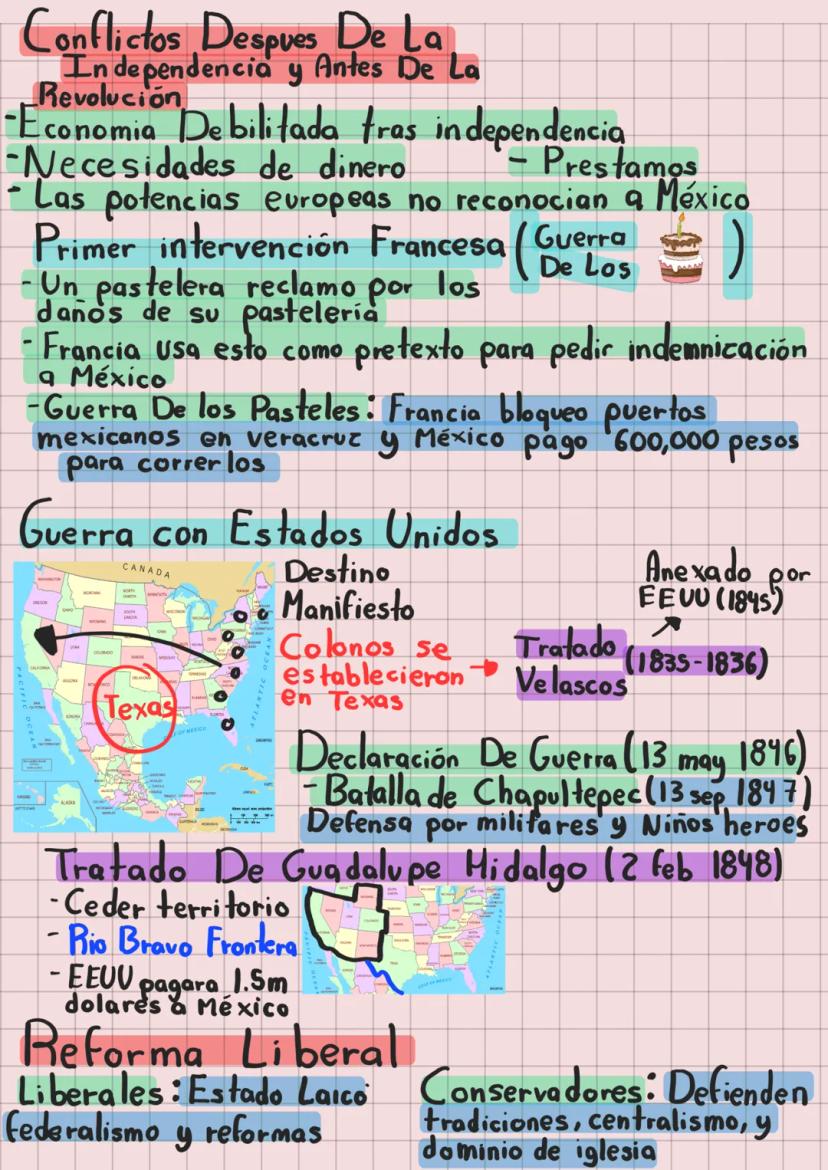 Conflictos Despues De La
Independencia y Antes De La
Revolución
-Economia Debilitada tras independencia
-Necesidades de dinero - Prestamos
- Las potencias europeas no reconocian a México
Primer intervención Francesa (Guerra De Los )
- Un pastelera reclamo por los
daños de su pastelería
- Francia usa esto como pretexto para pedir indemnización
a México
-Guerra De los Pasteles: Francia bloqueo puertos
mexicanos en veracruz y México pago 600,000 pesos
para correrlos
Guerra con Estados Unidos
CANADA
PACIFIC OCEAN
ATLANTIC OCEAN
GULF OF MEXICO
ALASKA
Texas
Destino
Manifiesto
Colonos se
establecieron
en Texas
Tratado
Velascos
(1835-1836)
Anexado por
EEUU (1845)
Declaración De Guerra (13 may 1846)
- Batalla de Chapultepec (13 sep 1847)
Defensa por militares y Niños heroes
Tratado De Guadalupe Hidalgo (2 feb 1848)
- Ceder territorio
- Rio Bravo Frontera
- EEUU pagara 1.5m
dolares a México
Reforma Liberal
Liberales: Estado Laico
federalismo y reformas
Conservadores: Defienden
tradiciones, centralismo, y
dominio de iglesia